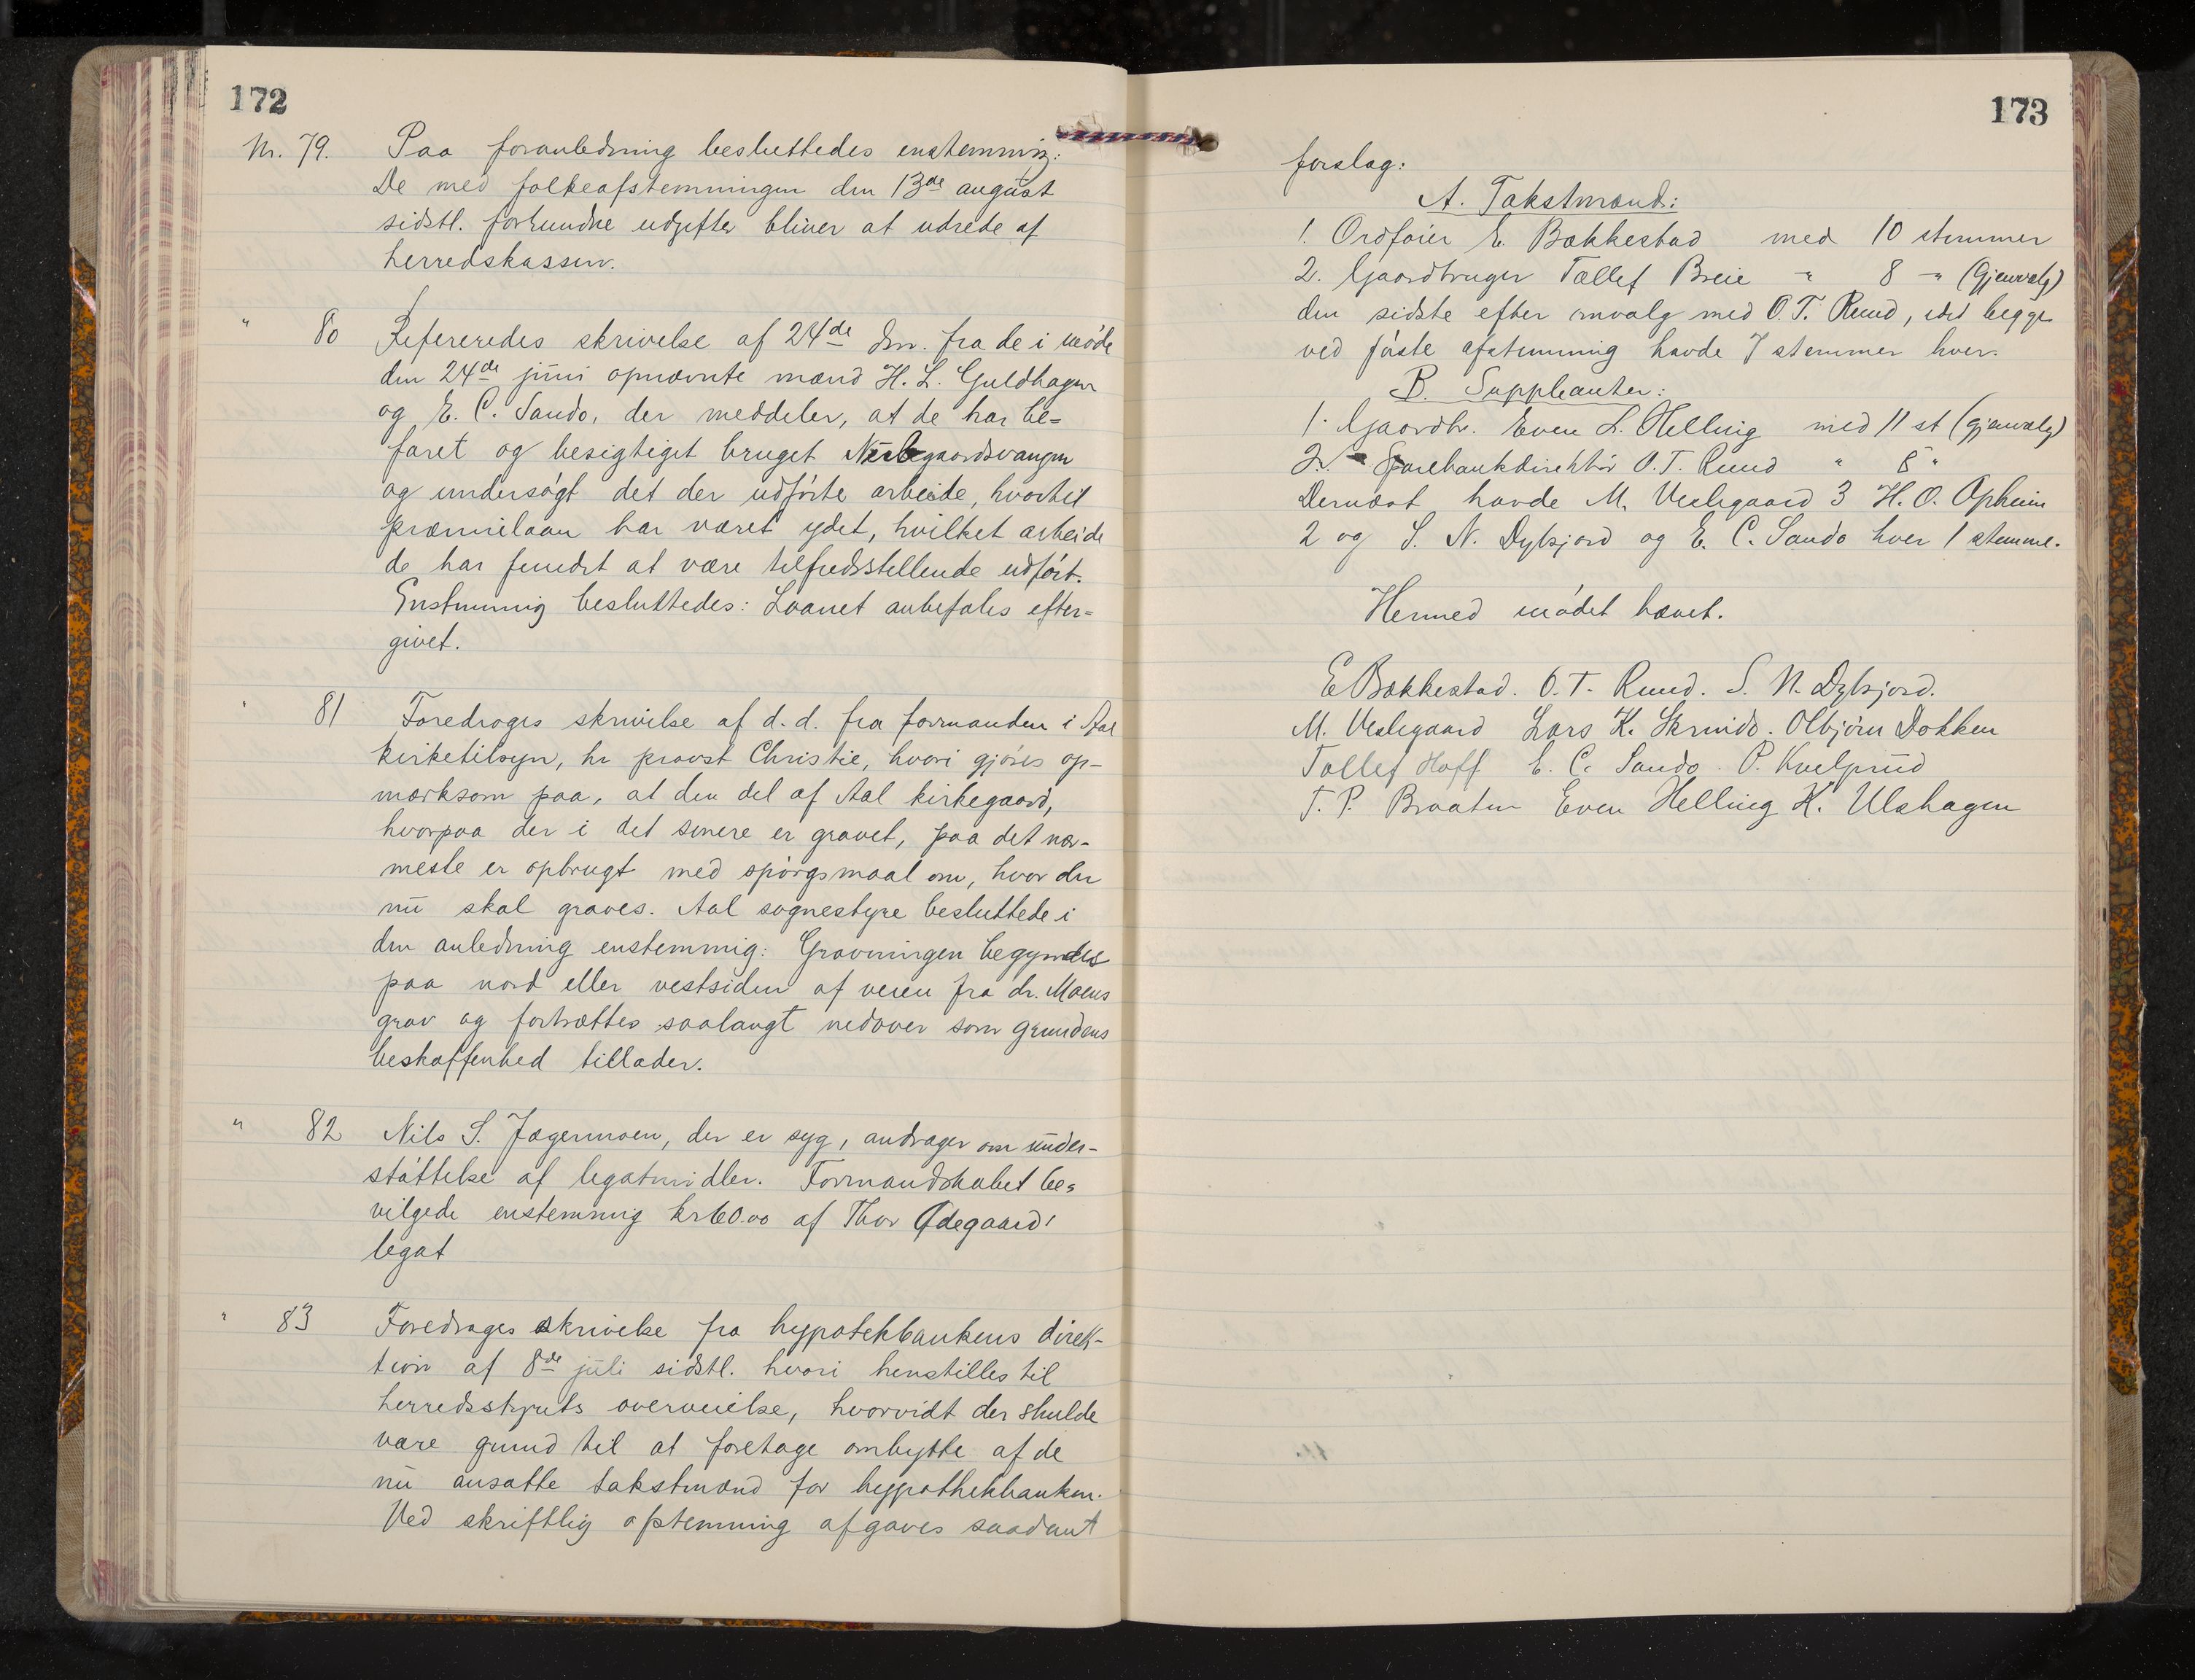 172
Nr. 79. Paa foranledning besluttedes enstemmig:
De med folkeafstemningen den 13de august
sidstl. forbundne udgifter bliver at udrede af
herredskassen.
" 80 Refereredes skrivelse af 24de dm. fra de i møde
den 24de juni opnævnte mænd H. L. Guldhagen
og E. C. Sando, der meddeler, at de har be=
faret og besigtiget bruget Nerbgaardsvangen
og undersøgt det der udførte arbeide, hvortil
præmielaan har været ydet, hvilket arbeide
de har fundet at være tilfredsstillende udført.
Enstemmig besluttedes: Laanet anbefales efter=
givet.
" 81 Foredroges skrivelse af d. d. fra formanden i Aal
kirketilsyn, hr provst Christie, hvori gjøres op-
mærksom paa, at den del af Aal kirkegaard,
hvorpaa der i det senere er gravet, paa det nær-
meste er opbrugt med spørgsmaal om, hvor der
nu skal graves. Aal sognestyre besluttede i
den anledning enstemmig: Gravningen begyndes
paa nord eller vestsiden af veien fra dr. Moens
grav og fortsættes saalangt nedover som grundens
beskaffenhed tillader.
" 82 Nils S. Jægermoen, der er syg, andrager om under-
støttelse af legatmidler. Formandskabet be=
vilgede enstemmig kr 60.00 af Thor Ødegaards
legat
" 83 Foredroges skrivelse fra hypotekbankens direk-
tion af 8de juli sidstl. hvori henstilles til
herredsstyrets overveielse, hvorvidt der skulde
være grund til at foretage ombytte af de
nu ansatte takstmænd for hypothekbanken.
Ved skriftlig afstemning afgaves saadant
173
forslag:
A. Takstmænd:
1. Ordføier E. Bakkestad med 10 stemmer
2. Gaardbruger Tollef Breie " 8 " (Gjenvalg)
den sidste efter omvalg med O. T. Ruud, idet begge
ved første afstemning havde 7 stemmer hver.
B. Suppleanter:
1. Gaardbr. Even L. Helling med 11 st (gjenvalg)
2. Sparebankdirektør O. T. Ruud " 8 "
Dernæst havde M. Veslegaard 3 H. O. Opheim
2 og S. N. Dybsjord og E. C. Sando hver 1 stemme.
Hermed mødet hævet.
E Bakkestad. O. T. Ruud. S. N. Dybsjord.
M. Veslegaard Lars K. Skrindo. Olbjørn Dokken
Tollef Hoff E. C. Sando. P. Kvelprud
T. P. Braaten Even Helling K. Ulshagen